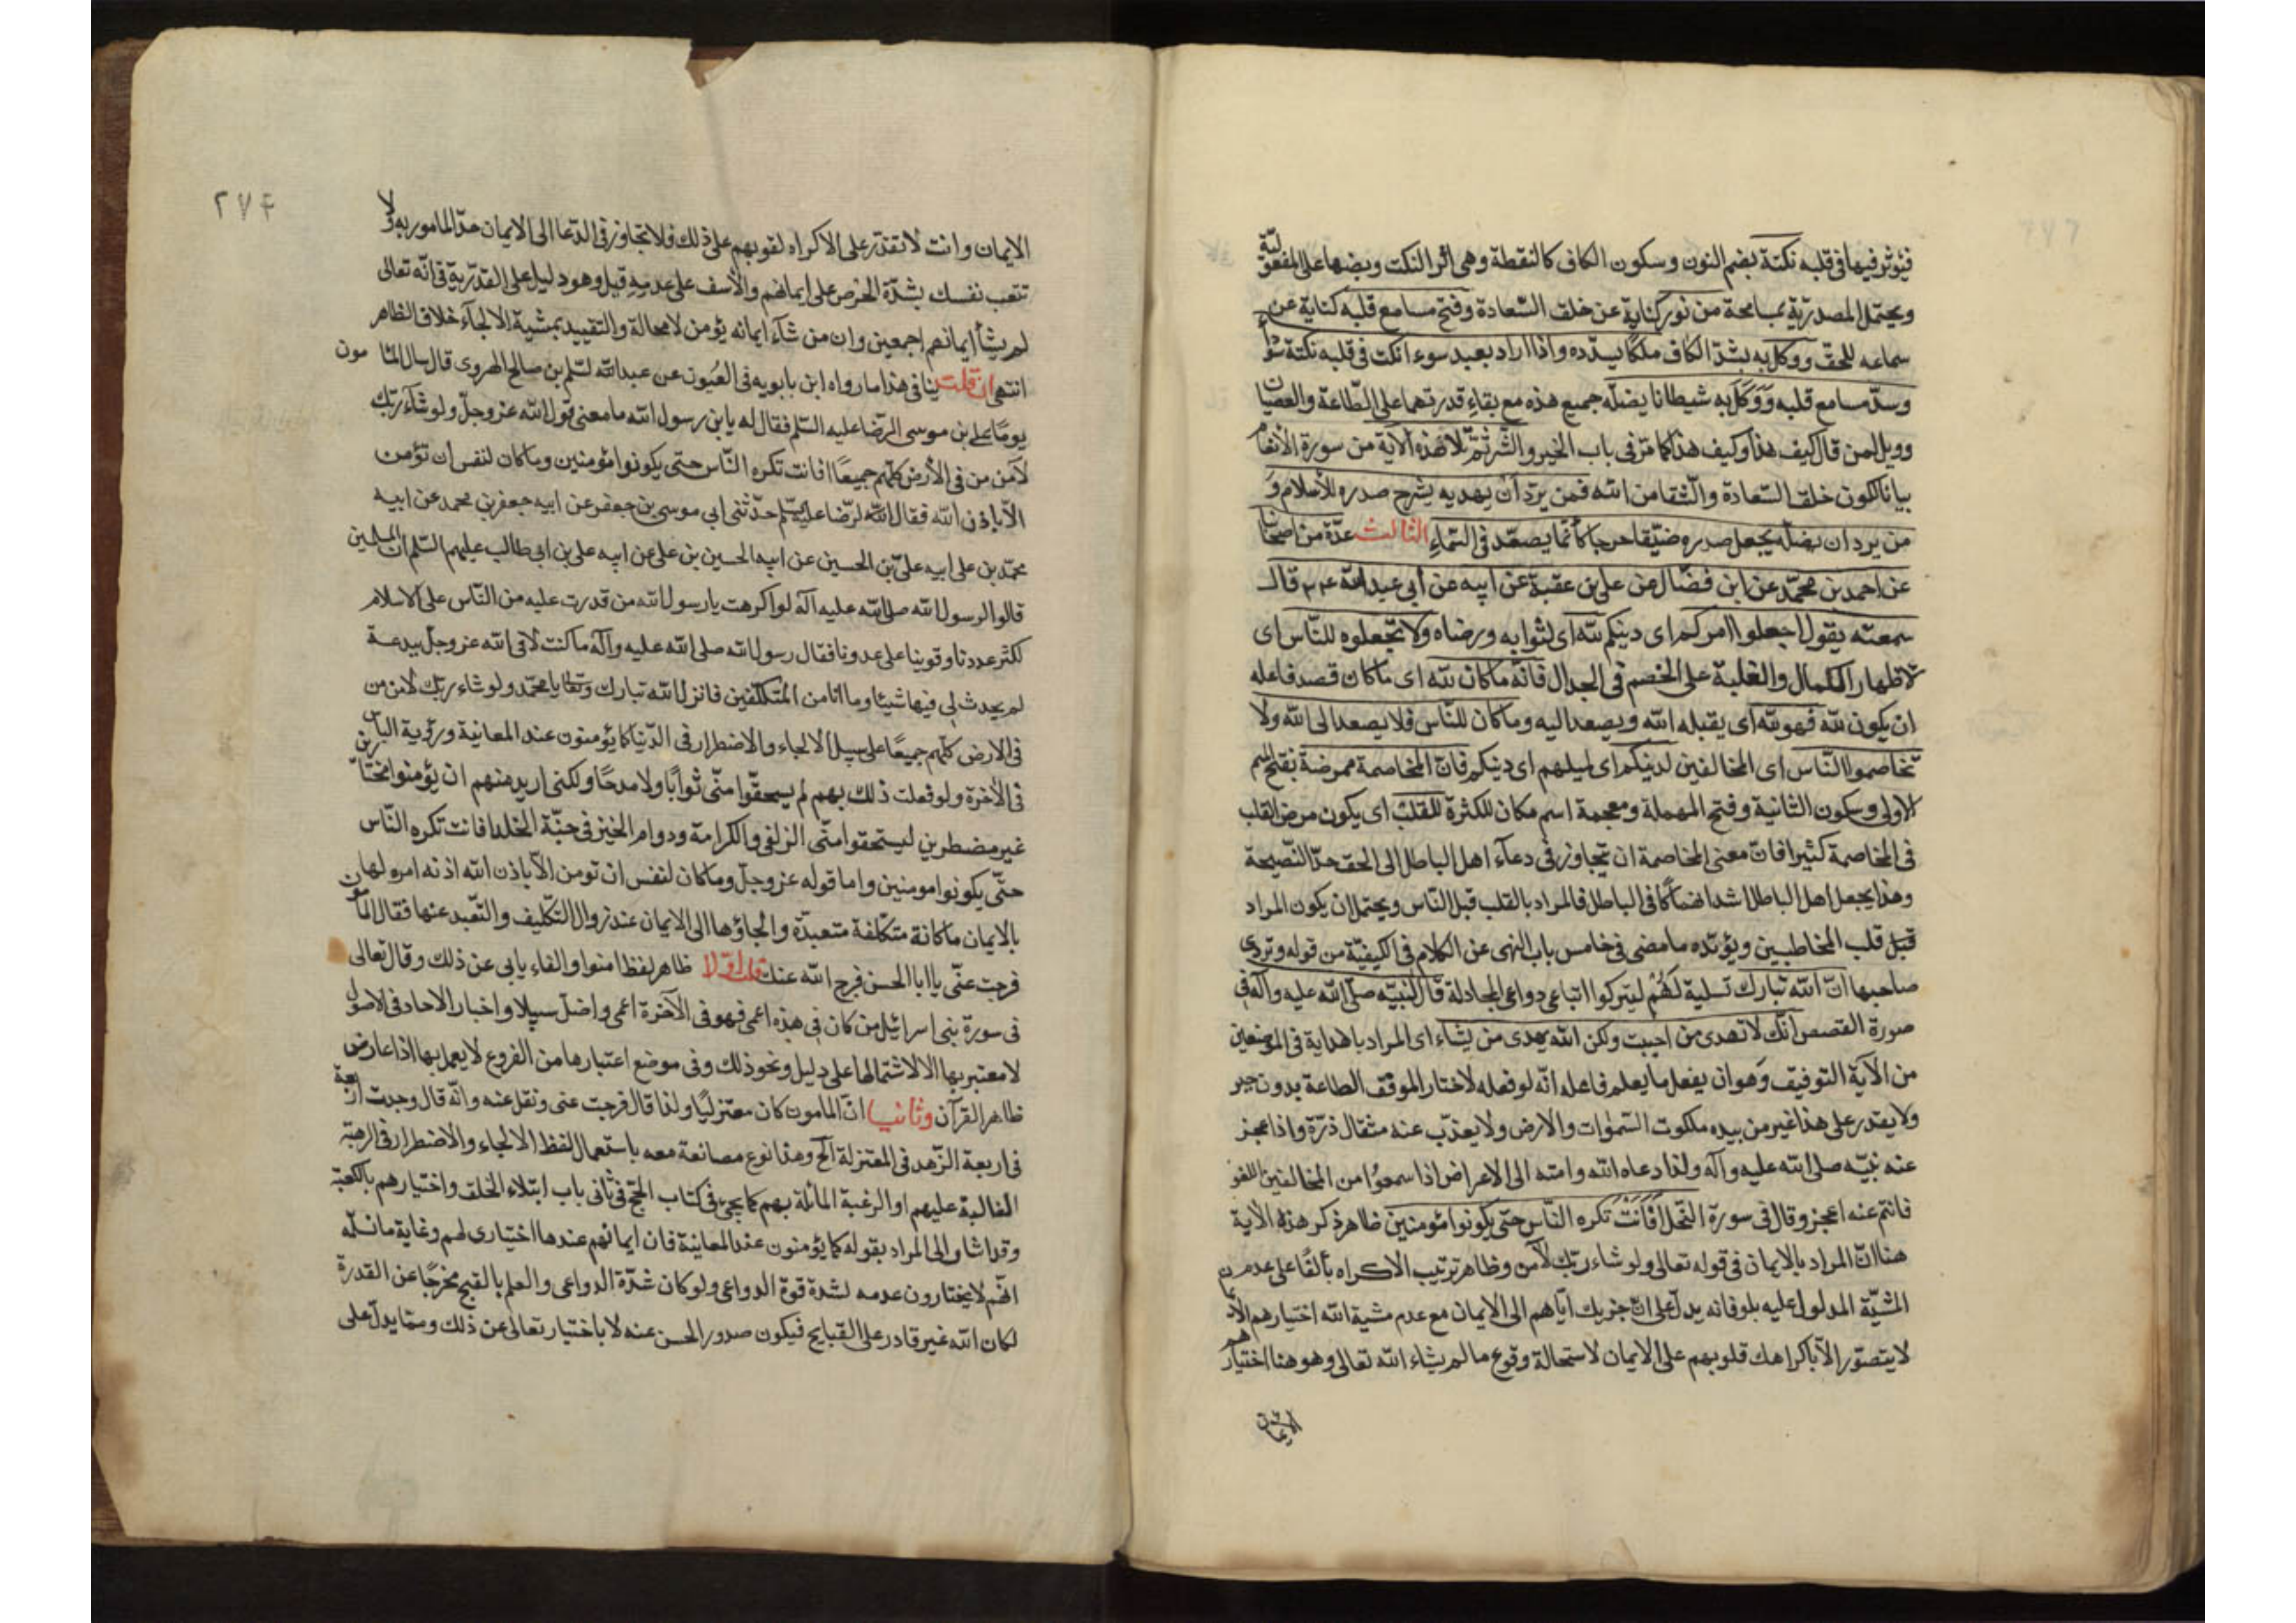 فيؤثر فيها في قلبه نكتة بضم النون وسكون الكاف كالنقطة وهي اثر النكت وبضها على المفعولية
ويحتمل المصدرية بمسامحة من نور كناية عن خلق السّعادة وفتح مسامع قلبه كناية عن
سماعه للحقّ ووكل به بشدّ الكاف ملكًا يسدّده واذا اراد بعبد سوءا نكت في قلبه نكتة سوداء
وسدّ مسامع قلبه وَوَكَّلَ به شيطانا يضلّه جميع هذه مع بقاء قدرتهما على الطّاعة والعصيان
وويل لمن قال كيف هذا وكيف هذا كما مرّ في باب الخير والشّر ثمّ تلا هذه الآية من سورة الأنعام
بيانا لكون خلق السّعادة والشّقا من الله فمن يرد ان يهديه يشرح صدره للأسلام وَ
من يرد ان يضلّه يجعل صدره ضيّقا حرجا كأنّما يصعّد في السّماء الثالث عدّة من اصحابنا
عن احمد بن محمّد عن ابن فضّال عن علي بن عقبة عن ابيه عن أبي عبد الله قال
سمعته يقول اجعلوا امركم اى دينكم لله اى لثوابه ورضاه ولا تجعلوه للنّاس اى
لاظهار الكمال والغلبة على الخصم في الجدال فانّه ما كان لله اى ما كان قصد فاعله
ان يكون لله فهو لله اى يقبله الله ويصعد اليه وما كان للنّاس فلا يصعد الى الله ولا
تخاصموا النّاس اى المخالفين لدينكم اى لميلهم اى دينكم فانّ المخاصمة ممرضة بفتح الميم
الاولى وسكون الثانية وفتح المهملة ومعجمة اسم مكان للكثرة للقلب اى يكون مرض القلب
في المخاصمة كثيرا فانّ معنى المخاصمة ان تتجاوز في دعآء اهل الباطل الى الحق حدّ النّصيحة
وهذا يجعل اهل الباطل اشد انهماكا في الباطل فالمراد بالقلب قبل النّاس ويحتمل ان يكون المراد
قبل قلب المخاطبين ويؤيّده ما مضى في خامس باب النهى عن الكلام في الكيفيّة من قوله وتردى
صاحبها انّ الله تبارك تسلية لَهُمْ ليتركوا اتباعى دواعى المجادلة قال لنبيّه صلّى الله عليه وآله في
صورة القصص انّك لا تهدى من احببت ولكن الله يهدى من يشاء اى المراد باهداية في الموضعين
من الآية التوفيق وهو ان يفعل ما يعلم فاعله انّه لو فعله لاختار الموفّق الطاعة بدون جبر
ولا يقدر على هذا غير من بيده ملكوت السّموات والارض ولا يعذب عنه مثقال ذرّة واذا عجز
عنه نبيّه صلى الله عليه وآله ولذا دعاه الله وامته الى الاعراض اذا سمعوا من المخالفين اللغو
فانتم عنه اعجز وقال في سورة النحل اَفَاَنْتَ تكره النّاس حتى يكونوا مؤمنين ظاهر ذكر هذه الآية
هنا انّ المراد بالايمان في قوله تعالى ولو شاء ربّك لآمن وظاهر ترتيب الاكراه بالفا على عدم
المشيّة المدلول عليه بلو فانه يدلّ على انّ جزيك ايّاهم الى الايمان مع عدم مشية الله اختيارهم الا
لا يتصوّر الاّ باكراهك قلوبهم على الايمان لاستحالة وقوع ما لم يشاء الله تعالى وهو هنا اختيارهم
٢٧۴
الايمان وانت لا تقدر على الاكراه لقوبهم على ذلك فلا تتجاوز في الدّعا الى الايمان حدّ المامور به ولا
تتعب نفسك بشدّة الحرص على ايمانهم والأسف على عدمه قيل وهو دليل على القدريّة في انّه تعالى
لم يشأ ايمانهم اجمعين وان من شآء ايمانه يؤمن لا محالة والتقييد بمشية الالجآء خلاف الظاهر
انتهى ان قلت ينافى هذا ما رواه ابن بابويه في العُيون عن عبد الله لسّلم بن صالح الهروى قال سال المامون
يومًا على بن موسى الرّضا عليه السّلم فقال له يا بن رسول الله ما معنى قول الله عزّ وجلّ ولو شآء ربّك
لآمن من في الأرض كلّهم جميعًا افانت تكره النّاس حتى يكونوا مؤمنين وما كان لنفس ان تؤمن
الاّ باذن الله فقال الرّضا عليه السّلم حدّثنى ابى موسى بن جعفر عن ابيه جعفر بن محمد عن ابيه
محمّد بن على ابيه علىّ بن الحسين عن ابيه الحسين بن على عن ابيه على بن ابى طالب عليهم السّلم ان المسلمين
قالوا لرسول الله صلى الله عليه آله لو اكرهت يا رسول الله من قدرت عليه من النّاس على الاسلام
لكثر عددنا وقوينا على عدونا فقال رسول الله صلى الله عليه وآله ما كنت لالقى الله عزّ وجلّ ببدعة
لم يحدث لى فيها شيئا وما انا من المتكلّفين فانزل الله تبارك وتعالى يا محمّد ولو شاء ربّك لآمن من
في الارض كلّهم جميعًا على سبيل الالجاء والاضطرار في الدّنيا كما يؤمنون عند المعاينة ورؤية البأس
في الآخرة ولو فعلت ذلك بهم لم يستحقّوا منّى ثوابًا ولا مدحًا ولكنى اريد منهم ان يؤمنوا مختارين
غير مضطرين ليستحقوا منّى الزلفى والكرامة ودوام الخير في جنّة الخلد افانت تكره النّاس
حتّى يكونوا مومنين واما قوله عزّ وجلّ وما كان لنفس ان تومن الاّ باذن الله اذنه امره لها
بالايمان ما كانة متكلّفة متعبدّة والجاؤها الى الايمان عند زوال التكليف والتعّبد عنها فقال المامون
فرجت عنّى يا ابا الحسن فرج الله عنك قلت اوّلا ظاهر لفظ امنوا والفاء يابى عن ذلك وقال تعالى
في سورة بنى اسرائيل من كان في هذه اعمى فهو في الآخرة اعمى واضلّ سبيلا واخبار الاحاد في الاصول
لا معتبر بها الا لاشتمالها على دليل ونحو ذلك وفى موضع اعتبارها من الفروع لا يعمل بها اذا عارض
ظاهر القرآن وثانيا انّ المامون كان معتزليّا ولذا قال فرجت عنى ونقل عنه وانّه قال وجدت اربعة
في اربعة الزّهد في المعتزلة الخ وهذا نوع مصانعة معه باستعمال لفظ الالجاء والاضطرار في الرهبة
الغالبة عليهم او الرغبة المائلة بهم كما يجئ في كتاب الحجّ في ثانى باب ابتلاء الخلق واختيارهم بالكعبة
وقد اشار الى المراد بقوله كما يؤمنون عند المعاينة فان ايمانهم عندها اختيارى لهم وغاية ما نسلّمه
انّهم لا يختارون عدمه لشدة قوة الدواعى ولو كان شدّة الدواعى والعلم بالقبح مخرجًا عن القدرة
لكان الله غير قادر على القبايح فيكون صدور الحسن عنه لا باختيار تعالى عن ذلك وممّا يدلّ على